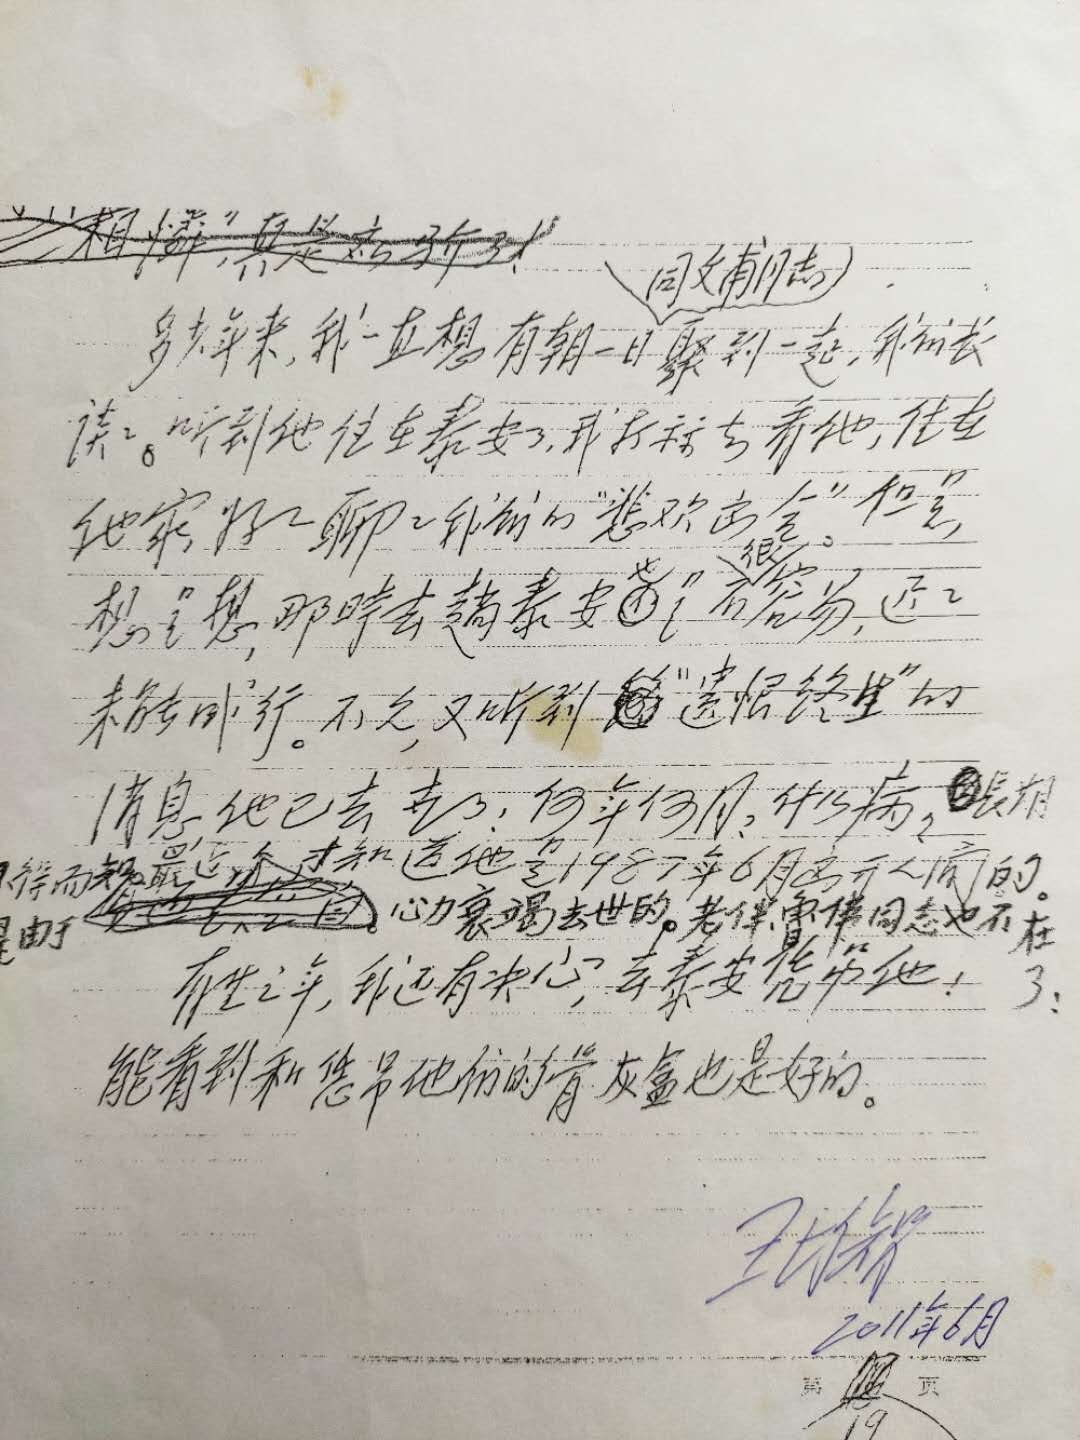 相怜”,真是
同文甫同志
多少年来,我一直想有朝一日聚到一起,我们长
谈谈。听到他住在泰安了,我打算去看他,住在
他家,好好聊聊我们的“悲欢离合”。但是,
想是想,那时去趟泰安也是很不容易,迟迟
未能成行。不久,又听到“遗恨终生”的
消息,他已去世了;何年何月?什么病?长期
不得而知。最近才知道他是1987年6月离开人间的。
是由于心力衰竭去世的。老伴曹伟同志也不在
了;
有生之年,我还有决心,去泰安凭吊他!
能看到和凭吊他们的骨灰盒也是好的。
2011年6月
第 页
19